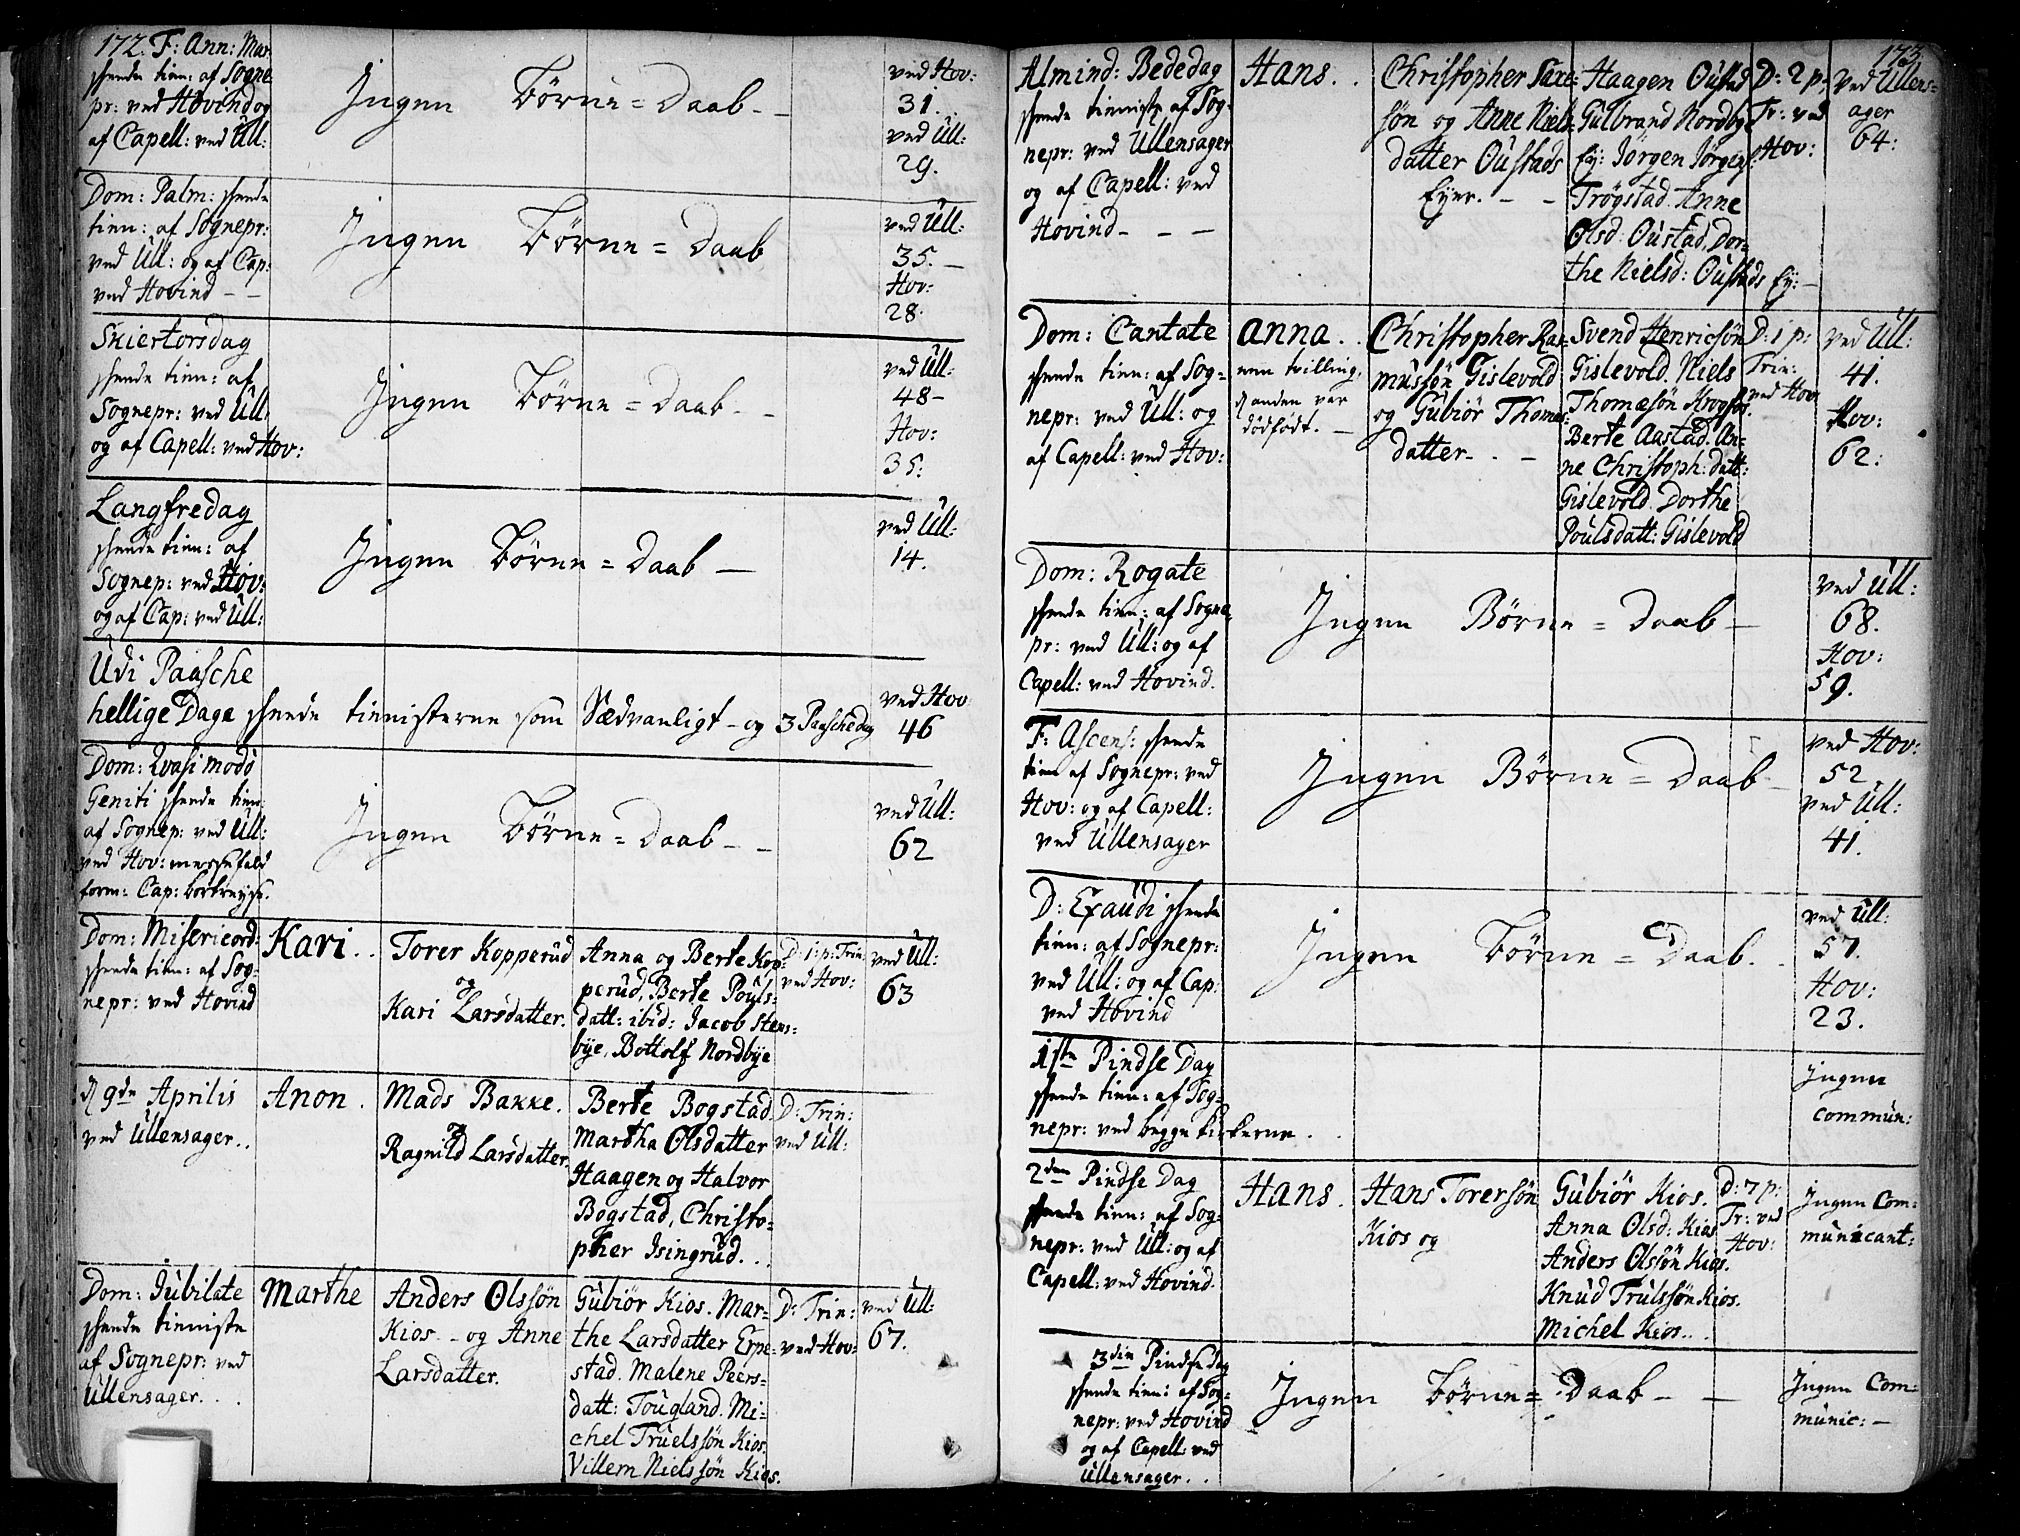 172. F: Ann: Mar:
skeede tien: af Sogne
pr: ved Hovind og
af Capell: ved Ull:
Ingen Börne=Daab -
ved Hov:
31.
ved Ull:
29.
Dom: Palm: skeede
tien: af Sognepr:
ved Ull: og af Cap:
ved Hovind - -
Ingen Börne=Daab
ved Ull:
35. -
Hov:
28.
Skiertorsdag
skeede tien: af
Sognepr: ved Ull:
og af Capell: ved Hov:
Ingen Börne=Daab - -
ved Ull:
48 -
Hov:
35:
Langfredag
skeede tien: af
Sognep: ved Hov:
og af Cap: ved Ull:
Ingen Börne=Daab -
ved Ull:
14.
Udi Paasche
hellige Dage skeede tienisterne som Sædvanligt - og 3 Paaschedag
ved Hov
46
Dom: Qvasi modo
Geniti skeede tien:
af Sognep: ved Ull:
ved Hov: messefald
form: Cap: bortreyse.
Ingen Börne=Daab - -
ved Ull:
62
Dom: Misericord:
skeede tien: af Sog-
nepr: ved Hovind
Kari . .
Torer Kopperud
og
Kari Larsdatter.
Anna og Berte Kop-
perud, Berte Pouls-
datt: ibid: Jacob Stens-
bye, Bottolf Nordbye
D: 1: p: Trin:
ved Hov:
ved Ull:
63
d 9de Aprilis
ved Ullensager . .
Anon .
Mads Bakke.
og
Ragnild Larsdatter.
Berte Bogstad
Martha Olsdatter
Haagen og Halvor
Bogstad, Christo-
pher Isingrud . .
D: Trin:
ved Ull:
Dom: Jubilate
skeede tieniste
af Sognepr: ved
Ullensager . . .
Marthe
Anders Olssön
Kios - og Anne
Larsdatter.
Gubiör Kios. Mar-
the Larsdatter Erpe-
stad. Malene Peers-
datt: Tougland. Mi-
chel Truelssön Kios.
Villem Nielssön Kios.
D: Trin:
ved Hov:
ved Ull:
67.
173
Almind: Bededag
skeede tieniste af Sog-
nepr: ved Ullensager
og af Capell: ved
Hovind - - -
Hans . .
Christopher Saxe-
sön og Anne Niels-
datter Oustads
Eyer. - -
Haagen Oustad
Gulbrand Nordbye
Ey: Jörgen Jörgens:
Trögstad. Anne
Olsd: Oustad, Dor-
the Nielsd: Oustads Ey: -
D: 2 p:
Tr: ved
Hov:
ved Ullens-
ager
64:
Dom: Cantate
skeede tien: af Sog-
nepr: ved Ull: og
af Capell: ved Hov:
Anna . .
een tvilling,
d anden var
dödfödt. -
Christopher Ras-
mussön Gislevold
og Gubiör Thomas-
datter - . -
Svend Henricsön
Gislevold. Niels
Thomæsön Krogsto.
Berte Aastad. An-
ne Christoph: datt:
Gislevold. Dorthe
Poulsdatt: Gislevold
D: 1 p:
Trin:
ved Hov:
ved Ull:
41.
Hov:
62:
Dom: Rogate
skeede tien: af Sogne
pr: ved Ull: og af
Capell: ved Hovind.
Ingen Börne=Daab -
ved Ull:
68.
Hov:
59.
F: Ascens: skeede
tien af Sognepr: ved
Hov: og af Capell:
ved Ullensager
Ingen Börne=Daab -
ved Hov:
52
ved Ull:
41.
D: Exaudi skeede
tien: af Sognepr:
ved Ull: og af Cap:
ved Hovind
Ingen Börne=Daab . .
ved Ull:
57.
Hov:
23.
1ste Pindse Dag
skeede tien: af Sog-
nepr: ved begge kirkerne . .
Ingen
commun:
2den Pindse Dag
skeede tien: af Sog-
nepr: ved Ull: og af
Capell: ved Hovind.
Hans .
Hans Torersön
Kios og
Gubiör Kios.
Anna Olsd: Kios
Anders Olssön Kios.
Knud Trulssön Kios.
Michel Kios . .
D: 7 p:
Tr: ved
Hov:
Ingen Com-
municant:
3die Pindse dag
skeede tien: af Sog-
nepr: ved Hovind
og af Capell: ved
Ullensager . .
Ingen Börne=Daab - -
Ingen Com-
munic: -